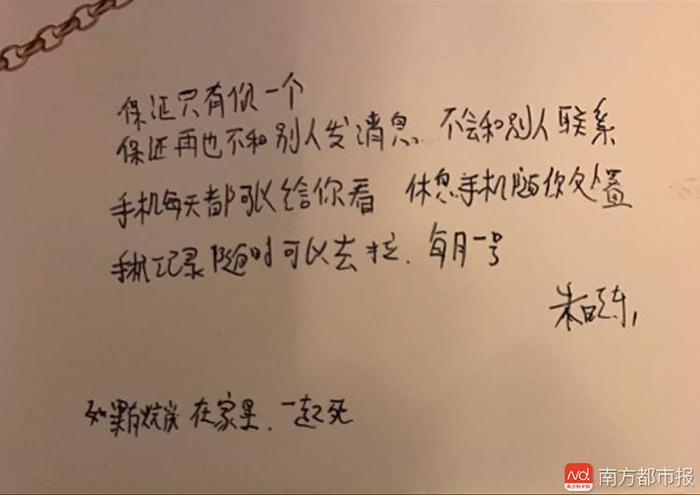 保证只有你一个
保证再也不和别人发消息 不会和别人联系
手机每天都可以给你看 休息手机随你处置
手机记录随时可以去拉. 每月一号
朱晓东
如果有炕炭在家里. 一起死
南方都市报